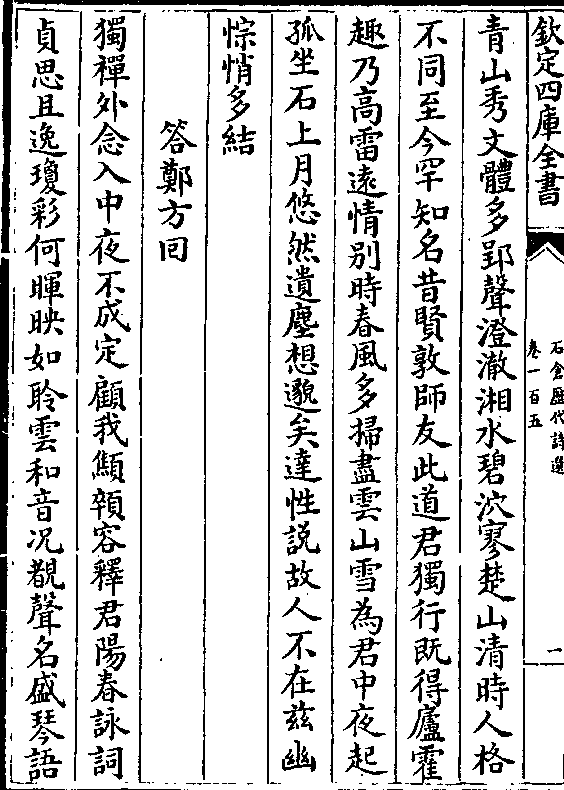 欽定四庫全書
石倉歷代詩選
卷一百五
一
青山秀文體多郢聲澄澈湘水碧泬寥楚山清時人格
不同至今罕知名昔賢敦師友此道君獨行既得廬霍
趣乃高雷遠情别時春風多掃盡雲山雪為君中夜起
孤坐石上月悠然遺塵想邈矣達性說故人不在兹幽
悰悄多結
答鄭方回
獨禪外念入中夜不成定顧我顦顇容釋君陽春詠詞
貞思且逸瓊彩何暉映如聆雲和音况覩聲名盛琴語